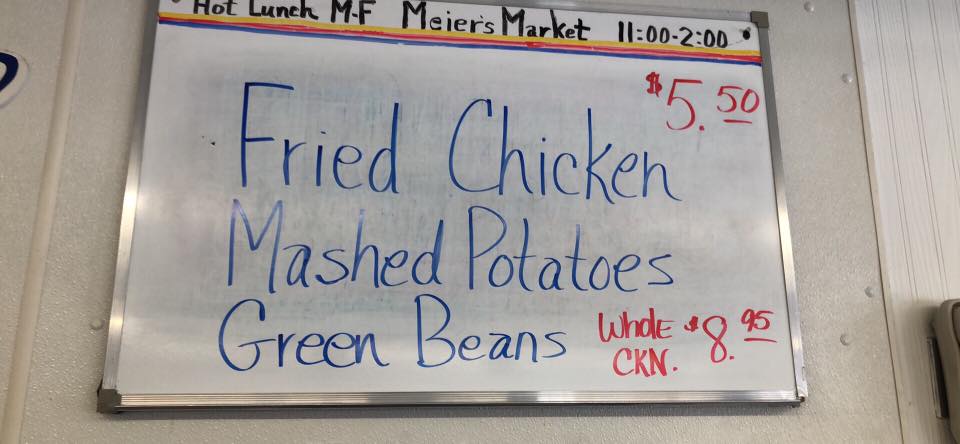 Hot Lunch M-F Meier's Market 11:00-2:00
$5.50
Fried Chicken
Mashed Potatoes
Green Beans
Whole $8.95
CKN.